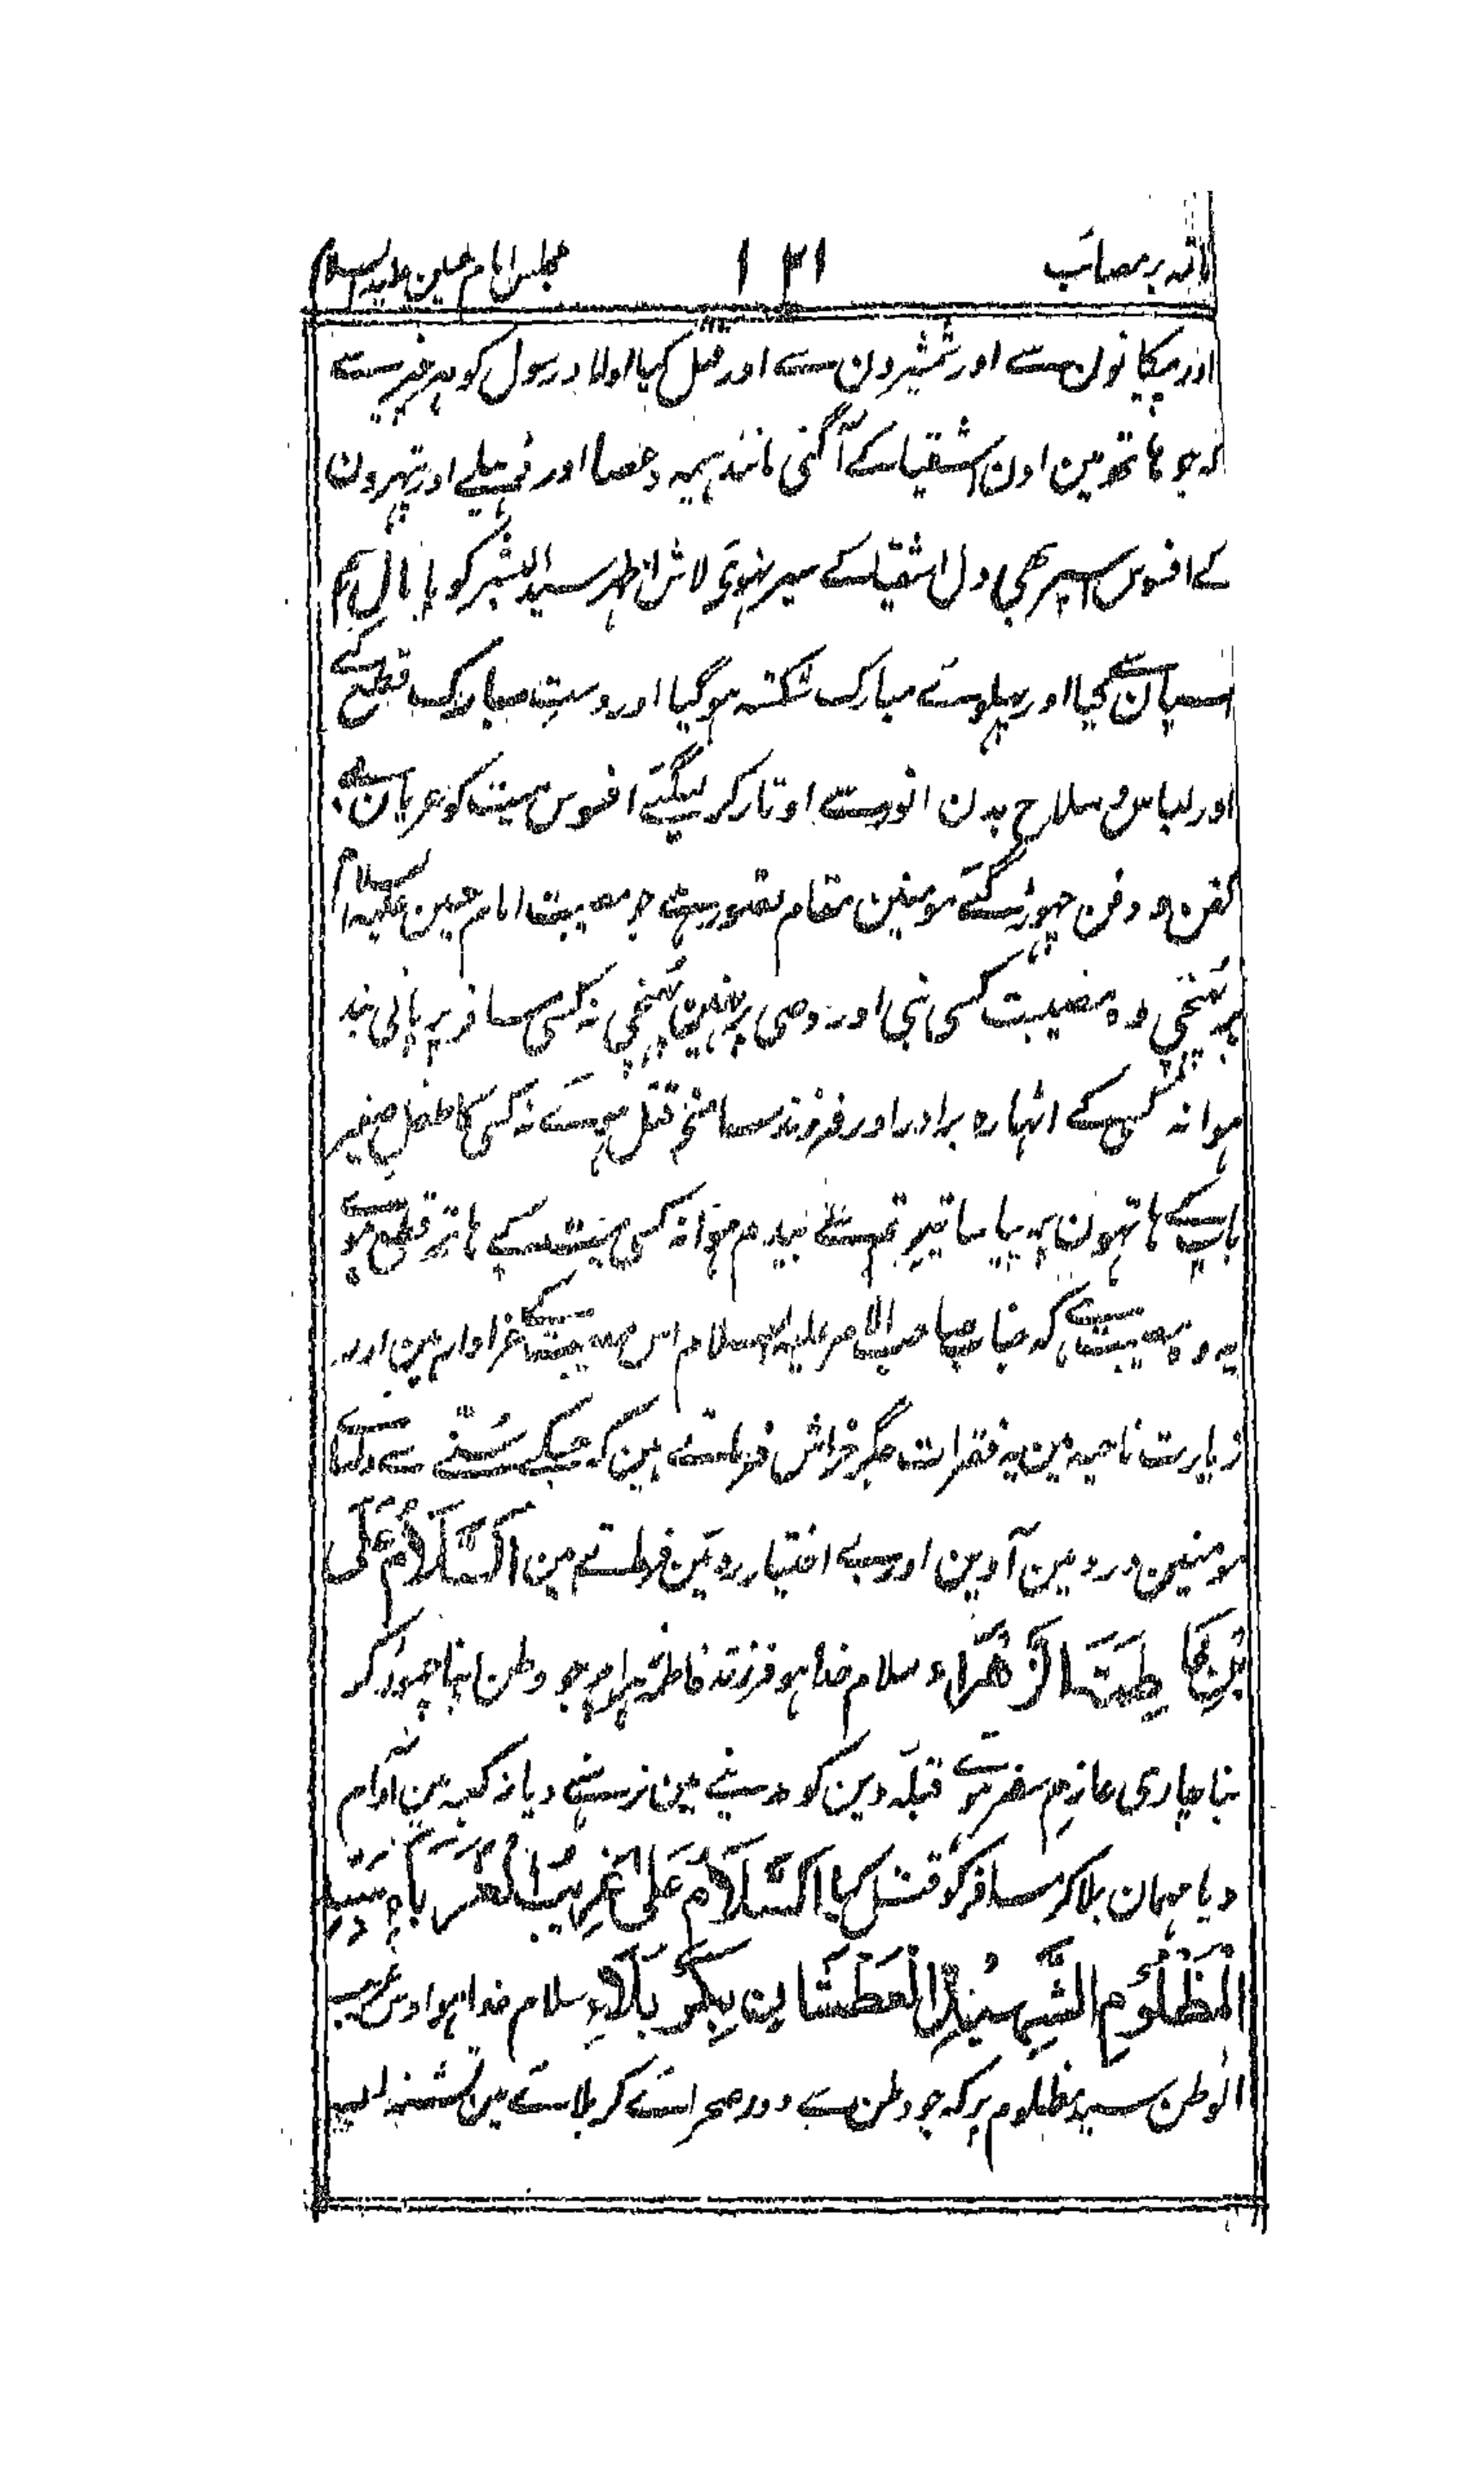 مصائب ۱۳۱ مجلس امام حسین علیہ السلام
اور پیکانون سے اور شمشیرون سے اور قتل کیا اولاد رسول کو ہر چیز سے
کہ جو ہاتھ مین اون اشقیا کے آ گئی مانند ہیمہ و عصا اور ڈھیلے اور پتہرون
کے افسوس اسپر بھی دل اشقیا کے سیر نہوئے لاش اطہر سید البشر کو پامال سم
اسپان سے کیا اور پہلوئے مبارک شکستہ ہو گیا اور دست مبارک قطع کئے
اور لباس و سلاح بدن انور سے اوتار کر لیگئے افسوس میت کو عریان بے
کفن و دفن چہوڑ گئے مومنین مقام تصور ہے جو مصیبت امام حسین علیہ السلام
پر پہنچی وہ مصیبت کسی نبی اور وصی پر نہین پہنچی نہ کسی مسافر پر پانی بند
ہوا نہ کسی کے اٹہارہ برادر اور فرزند سامنے قتل ہوئے نہ کسی کا طفل صغیر
باپ کے ہاتہون پر پیاسا تیر ستم سے بیدم ہوا نہ کسی میت کے ہاتہ قطع ہوئے
یہ وہ مصیبت ہے کہ جناب صاحب الامر علیہ السلام اس مصیبت کے عزادار ہین اور
زیارت ناحیہ مین یہ فقرات جگر خراش فرماتے ہین کہ جسکے سننے سے دلہائے
مومنین درد مین آوین اور بے اختیار روئین فرماتے ہین اَلسَّلَامُ عَلَی
ابْنِ فَاطِمَةَ الزَّهْرَاءِ سلام خدا ہو فرزند فاطمہ زہرا پر جو وطن اپنا چہوڑ کر
بناچاری عازم سفر ہوئے قبلہ دین کو مدینے مین نہ رہنے دیا نہ کعبہ مین آرام
دیا مہمان بلا کر مسافر کو قتل کیا اَلسَّلَامُ عَلٰی غَرِیْبِ الْغُرَبَاءِ سَیِّدِ
الْمَظْلُوْمِ الشَّهِیْدِ الْعَطْشَانِ بِکَرْبَلَاءِ سلام خدا ہو اوس غریب
الوطن سید مظلوم پر کہ جو وطن سے دور صحرائے کربلا مین تشنہ لب